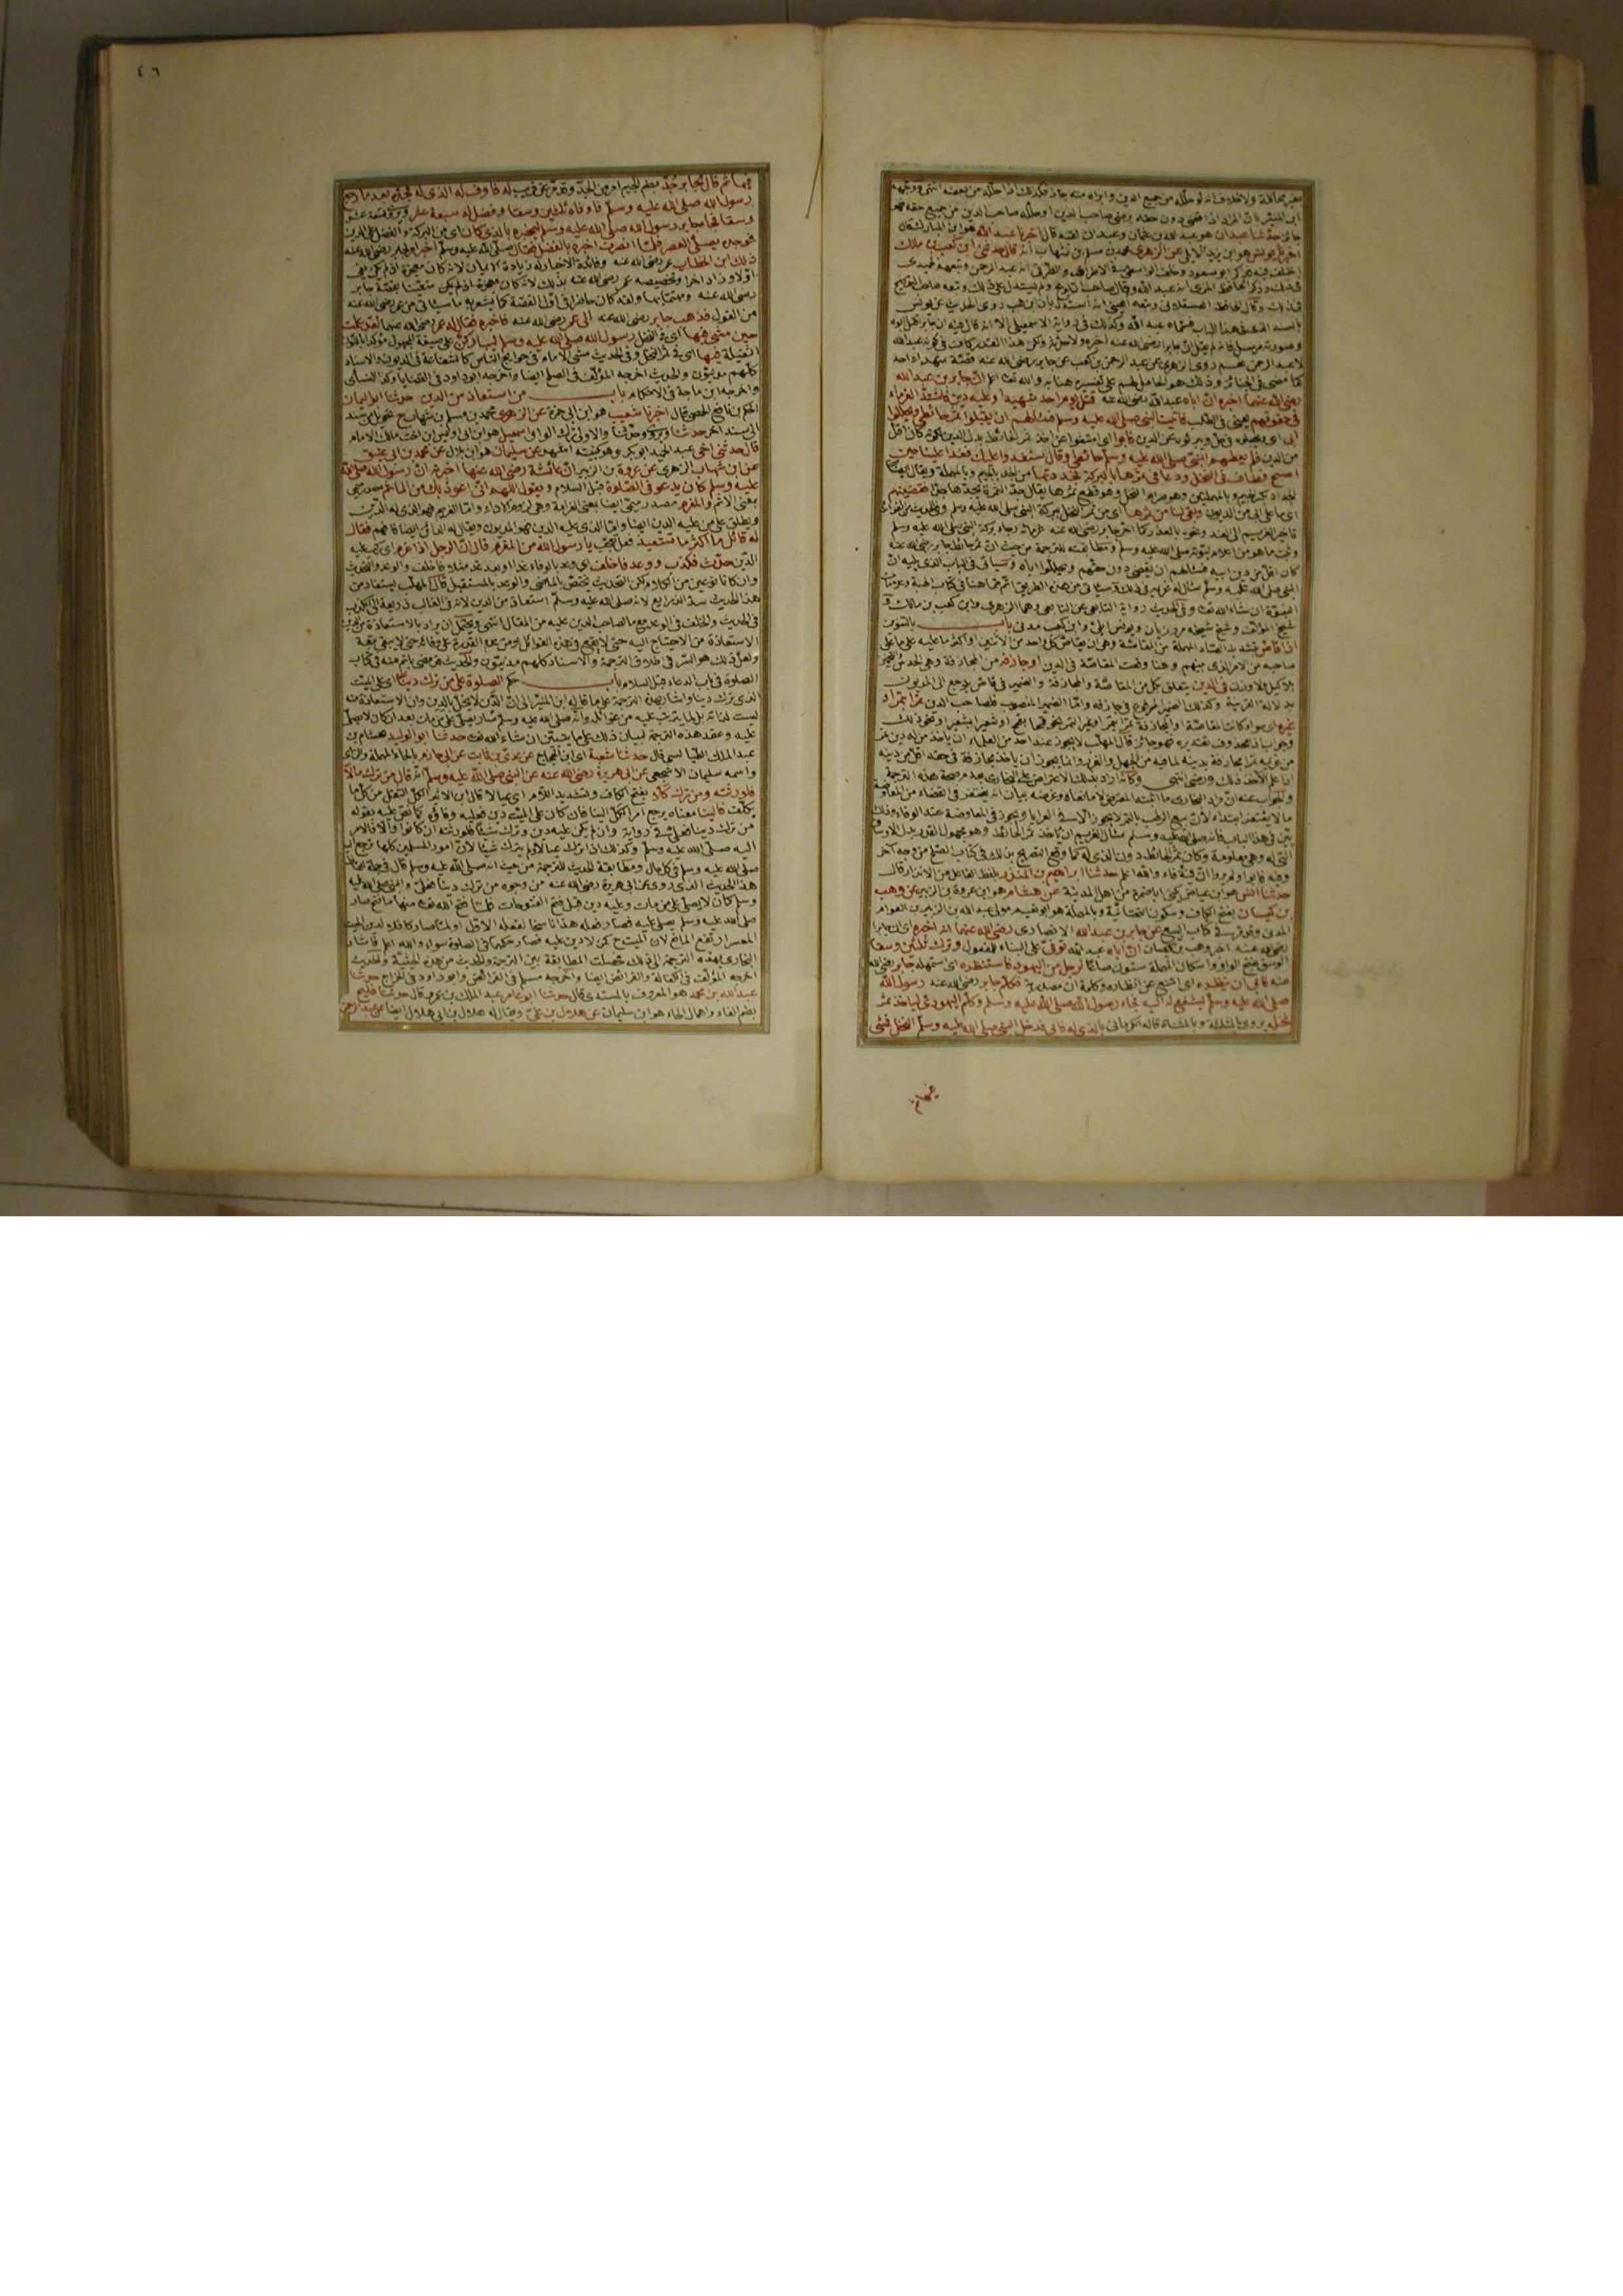 بغير محاللة ولا خلاف انه لو حلّله من جميع الدين وابراه منه جاز فكذلك اذا حلّله من بعضه انتهى ووجّهه
ابن المنير بانّ المراد اذا قضى دون حقه برضى صاحب الدين او حلّله صاحب الدين من جميع حقه فهو
جائز حدّثنا عبدان هو عبد الله بن عثمان وعبدان لقبه قال اخبرنا عبد الله هو ابن المبارك قال
اخبرنا يونس هو ابن يزيد الايلي عن الزهري محمد بن مسلم بن شهاب انه قال حدثني ابن كعب بن مالك
لا عبد الرحمن وروى الزهري عن عبد الرحمن بن كعب عن جابر رضى الله عنه قصّة شهداء احد
كما مضى في الجنائز وذلك هو الحامل لهم على تفسيره هنا به والله تعالى اعلم انّ جابر بن عبد الله
رضى الله عنهما اخبره انّ اباه عبد الله رضى الله عنه قتل يوم احد شهيدا وعليه دين فاشتدّ الغرماء
في حقوقهم يعني في الطلب فاتيت النبي صلى الله عليه وسلم فسألهم ان يقبلوا ثمر حائطي ويحللوا
ابى اى يجعلوه في حل ويبرئوه عن الدين فابوا اى امتنعوا عن اخذ ثمر الحائط بدل الدين لكونه كان اقل
من الدين فلم يعطهم النبي صلى الله عليه وسلم حائطي وقال سنغدو عليك فغدا علينا حين
اصبح فطاف في النخل ودعا في ثمرها بالبركة فجددتها من الجداد بالجيم وبالمهملة ويقال ايضا
اى ما على ابى من الديون وبقى لنا من ثمرها اى من ثمر النخل ببركة النبي صلى الله عليه وسلم
كان اقل من دين ابيه فسألهم ان يقبضوا دون حقهم ويحللوا اباه وسيأتى في الباب الذى يليه ان
النبي صلى الله عليه وسلم سأل له غريمه في ذلك
شيخ المؤلف وشيخ شيخه مروزيان ويونس ايلي وابن كعب مدني باب بالتنوين
اذا قاصّ بتشديد الصاد المهملة من المقاصّة وهي ان يقاصّ كل واحد من الاثنين او اكثر ما عليه على ما على
صاحبه من الامر الذى بينهم وهنا وقعت المقاصّة في الدين او جازفه من المجازفة وهي الحدس
بلا كيل ولا وزن في الدين يتعلق بكل من المقاصّة والمجازفة والضمير في قاص يرجع الى المديون
بدلالة القرينة وكذلك الضمير المرفوع في جازفه وامّا الضمير المنصوب فلصاحب الدين تمرا بتمر او
غيره اى سواء كانت المقاصّة او المجازفة تمرا بتمر او غير التمر نحو قمحا بقمح او شعيرا بشعير ونحو ذلك
وجواب اذا محذوف تقديره فهو جائز قال المهلب لا يجوز عند احد من العلماء ان ياخذ من له دين تمر
من غريمه تمرا مجازفة بدينه لما فيه من الجهل والغرر وانما يجوز ان ياخذ مجازفة في حقه اقل من دينه
اذا علم الآخذ ذلك ورضي انتهى وكأنه اراد بذلك الاعتراض على البخاري
ما لا يغتفر ابتداء لأن بيع الرطب بالتمر لا يجوز الا في العرايا ويجوز في المعاوضة عند الوفاء وذلك
بيّن في هذا الباب فانه صلى الله عليه وسلم سأل الغريم ان ياخذ ثمر الحائط وهو مجهول القدر بدل الاوساق
التي له وهي معلومة وكان ثمر الحائط دون الذى له كما وقع التصريح بذلك في كتاب الصلح من وجه آخر
وفيه فابوا ولم يروا انّ فيه وفاء والله اعلم حدثنا ابراهيم بن المنذر بلفظ الفاعل من الانذار قال
حدثنا انس هو ابن عياض يكنى ابا ضمرة من اهل المدينة عن هشام هو ابن عروة بن الزبير عن وهب
بن كيسان بفتح الكاف وسكون التحتانية وبالمهملة هو ابو نعيم مولى عبد الله بن الزبير بن العوام
المدني وقد مر في كتاب البيع عن جابر بن عبد الله الانصاري رضى الله عنهما انه اخبره اى ان جابرا
رضى الله عنه اخبر وهب بن كيسان انّ اباه عبد الله توفي على البناء للمفعول وترك ثلثين وسقا
الوسق بفتح الواو واسكان المهملة ستون صاعا لرجل من اليهود فاستنظره اى استمهله جابر رضى الله
عنه فابى ان ينظره اى امتنع عن انظاره وكلمة ان مصدرية فكلّم جابر رضى الله عنه رسول الله
صلى الله عليه وسلم ليشفع له اليه فجاء رسول الله صلى الله عليه وسلم وكلّم اليهودي لياخذ ثمر
نخله يروى بالمثلثة وبالمثناة قاله الكرماني بالذى له فابى فدخل النبي صلى الله عليه وسلم النخل فمشى
فيها
٤٦
فيها ثم قال لجابر جُدّ بضم الجيم امر من الجدّ وقد مرّ عن قريب له فاوف له الذى له فجدّه بعد ما رجع
رسول الله صلى الله عليه وسلم فاوفاه ثلثين وسقا وفضل له سبعة عشر ويروى تسعة عشر
وسقا فجاء جابر رسول الله صلى الله عليه وسلم ليخبره بالذى كان اى من البركة والفضل على الدين
فوجده يصلى العصر فلما انصرف اخبره بالفضل فقال صلى الله عليه وسلم اخبر اى يا جابر رضى الله عنه
ذلك ابن الخطاب عمر رضى الله عنه وفائدة الاخبار له زيادة الايمان لانه كان معجزة اذ لم يكن يفي
اولا وزاد اخرا وتخصيصه عمر رضى الله عنه بذلك لانه كان معتنيا بقصّة جابر
رضى الله عنه ومهتما بها وانه كان حاضرا في اول القصّة كما يشعر به ما سيأتى من عمر رضى الله عنه
من القول فذهب جابر رضى الله عنه الى عمر رضى الله عنه فاخبره فقال له عمر رضى الله عنه لقد علمت
حين مشى فيها اى في النخل رسول الله صلى الله عليه وسلم ليباركنّ على صيغة المجهول مؤكدا بالنون
الثقيلة فيها اى في ثمر النخل وفي الحديث مشى الامام في حوائج الناس كالشفاعة في الديون والاسناد
كلّهم مدنيون والحديث اخرجه المؤلف في الصلح ايضا واخرجه ابو داود في الوصايا وكذا النسائي
واخرجه ابن ماجة في الاحكام باب من استعاذ من الدين حدثنا ابو اليمان
الحكم بن نافع الحمصي قال اخبرنا شعيب هو ابن ابى حمزة عن الزهري محمد بن مسلم بن شهاب ح تحويل من سند
الى سند آخر حدثنا ويروى وحدّثنا والاولى ترك الواو اسمعيل هو ابن ابى اويس ابن اخت مالك الامام
قال حدثني اخى عبد الحميد ابو بكر وهو بكنيته اشهر عن سليمان هو ابن بلال عن محمد بن ابى عتيق
عن ابن شهاب الزهري عن عروة بن الزبير انّ عائشة رضى الله عنها اخبرته انّ رسول الله صلى الله
عليه وسلم كان يدعو في الصلوة قبل السلام ويقول اللهم انى اعوذ بك من الماثم مصدر ميمي
بمعنى الاثم والمغرم مصدر ميمي ايضا بمعنى الغرامة وهي لزوم الاداء وامّا الغريم فهو الذى له الدين
ويطلق على من عليه الدين ايضا وامّا الذى عليه الدين فهو المديون ويقال له الدائن ايضا فافهم فقال
له قائل ما اكثر ما تستعيذ فعل تعجّب يا رسول الله من المغرم قال انّ الرجل اذا غرم اى ركب عليه
الدين حدّث فكذب ووعد فاخلف اى وعد بالوفاء غدا او بعد غد مثلا فاخلف والوعد والتحديث
وان كانا نوعين من الكلام لكن التحديث يختص بالماضي والوعد بالمستقبل قال المهلب يستفاد من
هذا الحديث سد الذرايع لانه صلى الله عليه وسلم استعاذ من الدين لانه في الغالب ذريعة الى الكذب
في الحديث والخلف في الوعد مع ما لصاحب الدين عليه من المقال انتهى ويحتمل ان يراد بالاستعاذة من الدين
الاستعاذة من الاحتياج اليه حتى لا يقع في هذه الغوائل او من عدم القدرة على وفائه حتى لا يبقى تبعة
ولعل ذلك هو السر في اطلاق الترجمة والاسناد كلهم مدنيون والحديث قد مضى باتم منه في كتاب
الصلوة في باب الدعاء قبل السلام باب حكم الصلوة على من ترك دينا اى على الميت
الذى ترك دينا واشار بهذه الترجمة على ما قاله ابن المنير الى انّ الدين لا يخلّ بالدين وان الاستعاذة منه
ليست لذاته بل لما يترتب عليه من غوائله وانه صلى الله عليه وسلم صار يصلى على من مات بعد ان كان لا يصلى
عليه وعقد هذه الترجمة لبيان ذلك على ما يتبيّن ان شاء الله تعالى حدثنا ابو الوليد هشام بن
عبد الملك الطيالسي قال حدثنا شعبة اى ابن الحجاج عن عدي بن ثابت عن ابى حازم بالحاء المهملة والزاى
واسمه سليمان الاشجعي عن ابى هريرة رضى الله عنه عن النبي صلى الله عليه وسلم انه قال من ترك مالا
فلورثته ومن ترك كلّا بفتح الكاف وتشديد اللام اى عيالا قال ابن الاثير الكل الثقل من كل ما
يتكلف فالينا معناه يرجع امر الكل الينا فان كان على الميت دين فعليه وفاؤه كما نص عليه بقوله
من ترك دينا فعلىّ في رواية وان لم يكن عليه دين وترك شيئا فلورثته ان كانوا والا فالامر
اليه صلى الله عليه وسلم وكذلك اذا ترك عيالا ولم يترك شيئا لانّ امور المسلمين كلها ترجع اليه
صلى الله عليه وسلم في كل حال ومطابقة الحديث للترجمة من حيث انه صلى الله عليه وسلم قال في جملة الفاظ
هذا الحديث الذى روى عن ابى هريرة رضى الله عنه من وجوه من ترك دينا فعلىّ والنبي صلى الله عليه
وسلم كان لا يصلى على من مات وعليه دين قبل فتح الفتوحات فلما فتح الله تعالى منها ما فتح صار
صلى الله عليه وسلم يصلى عليه فصار فعله هذا ناسخا لفعله الاول
البخاري بهذه الترجمة الى ذلك فحصلت المطابقة بين الترجمة والحديث من هذه الحيثية والحديث
اخرجه المؤلف في الكفالة والفرائض ايضا واخرجه مسلم في الفرائض وابو داود في الخراج حدثنا
عبد الله بن محمد هو المعروف بالمسندى قال حدثنا ابو عامر عبد الملك بن عمرو قال حدثنا فليح
بضم الفاء واهمال الحاء هو ابن سليمان عن هلال بن علي ويقال له هلال بن ابى هلال ايضا عن عبد الرحمن